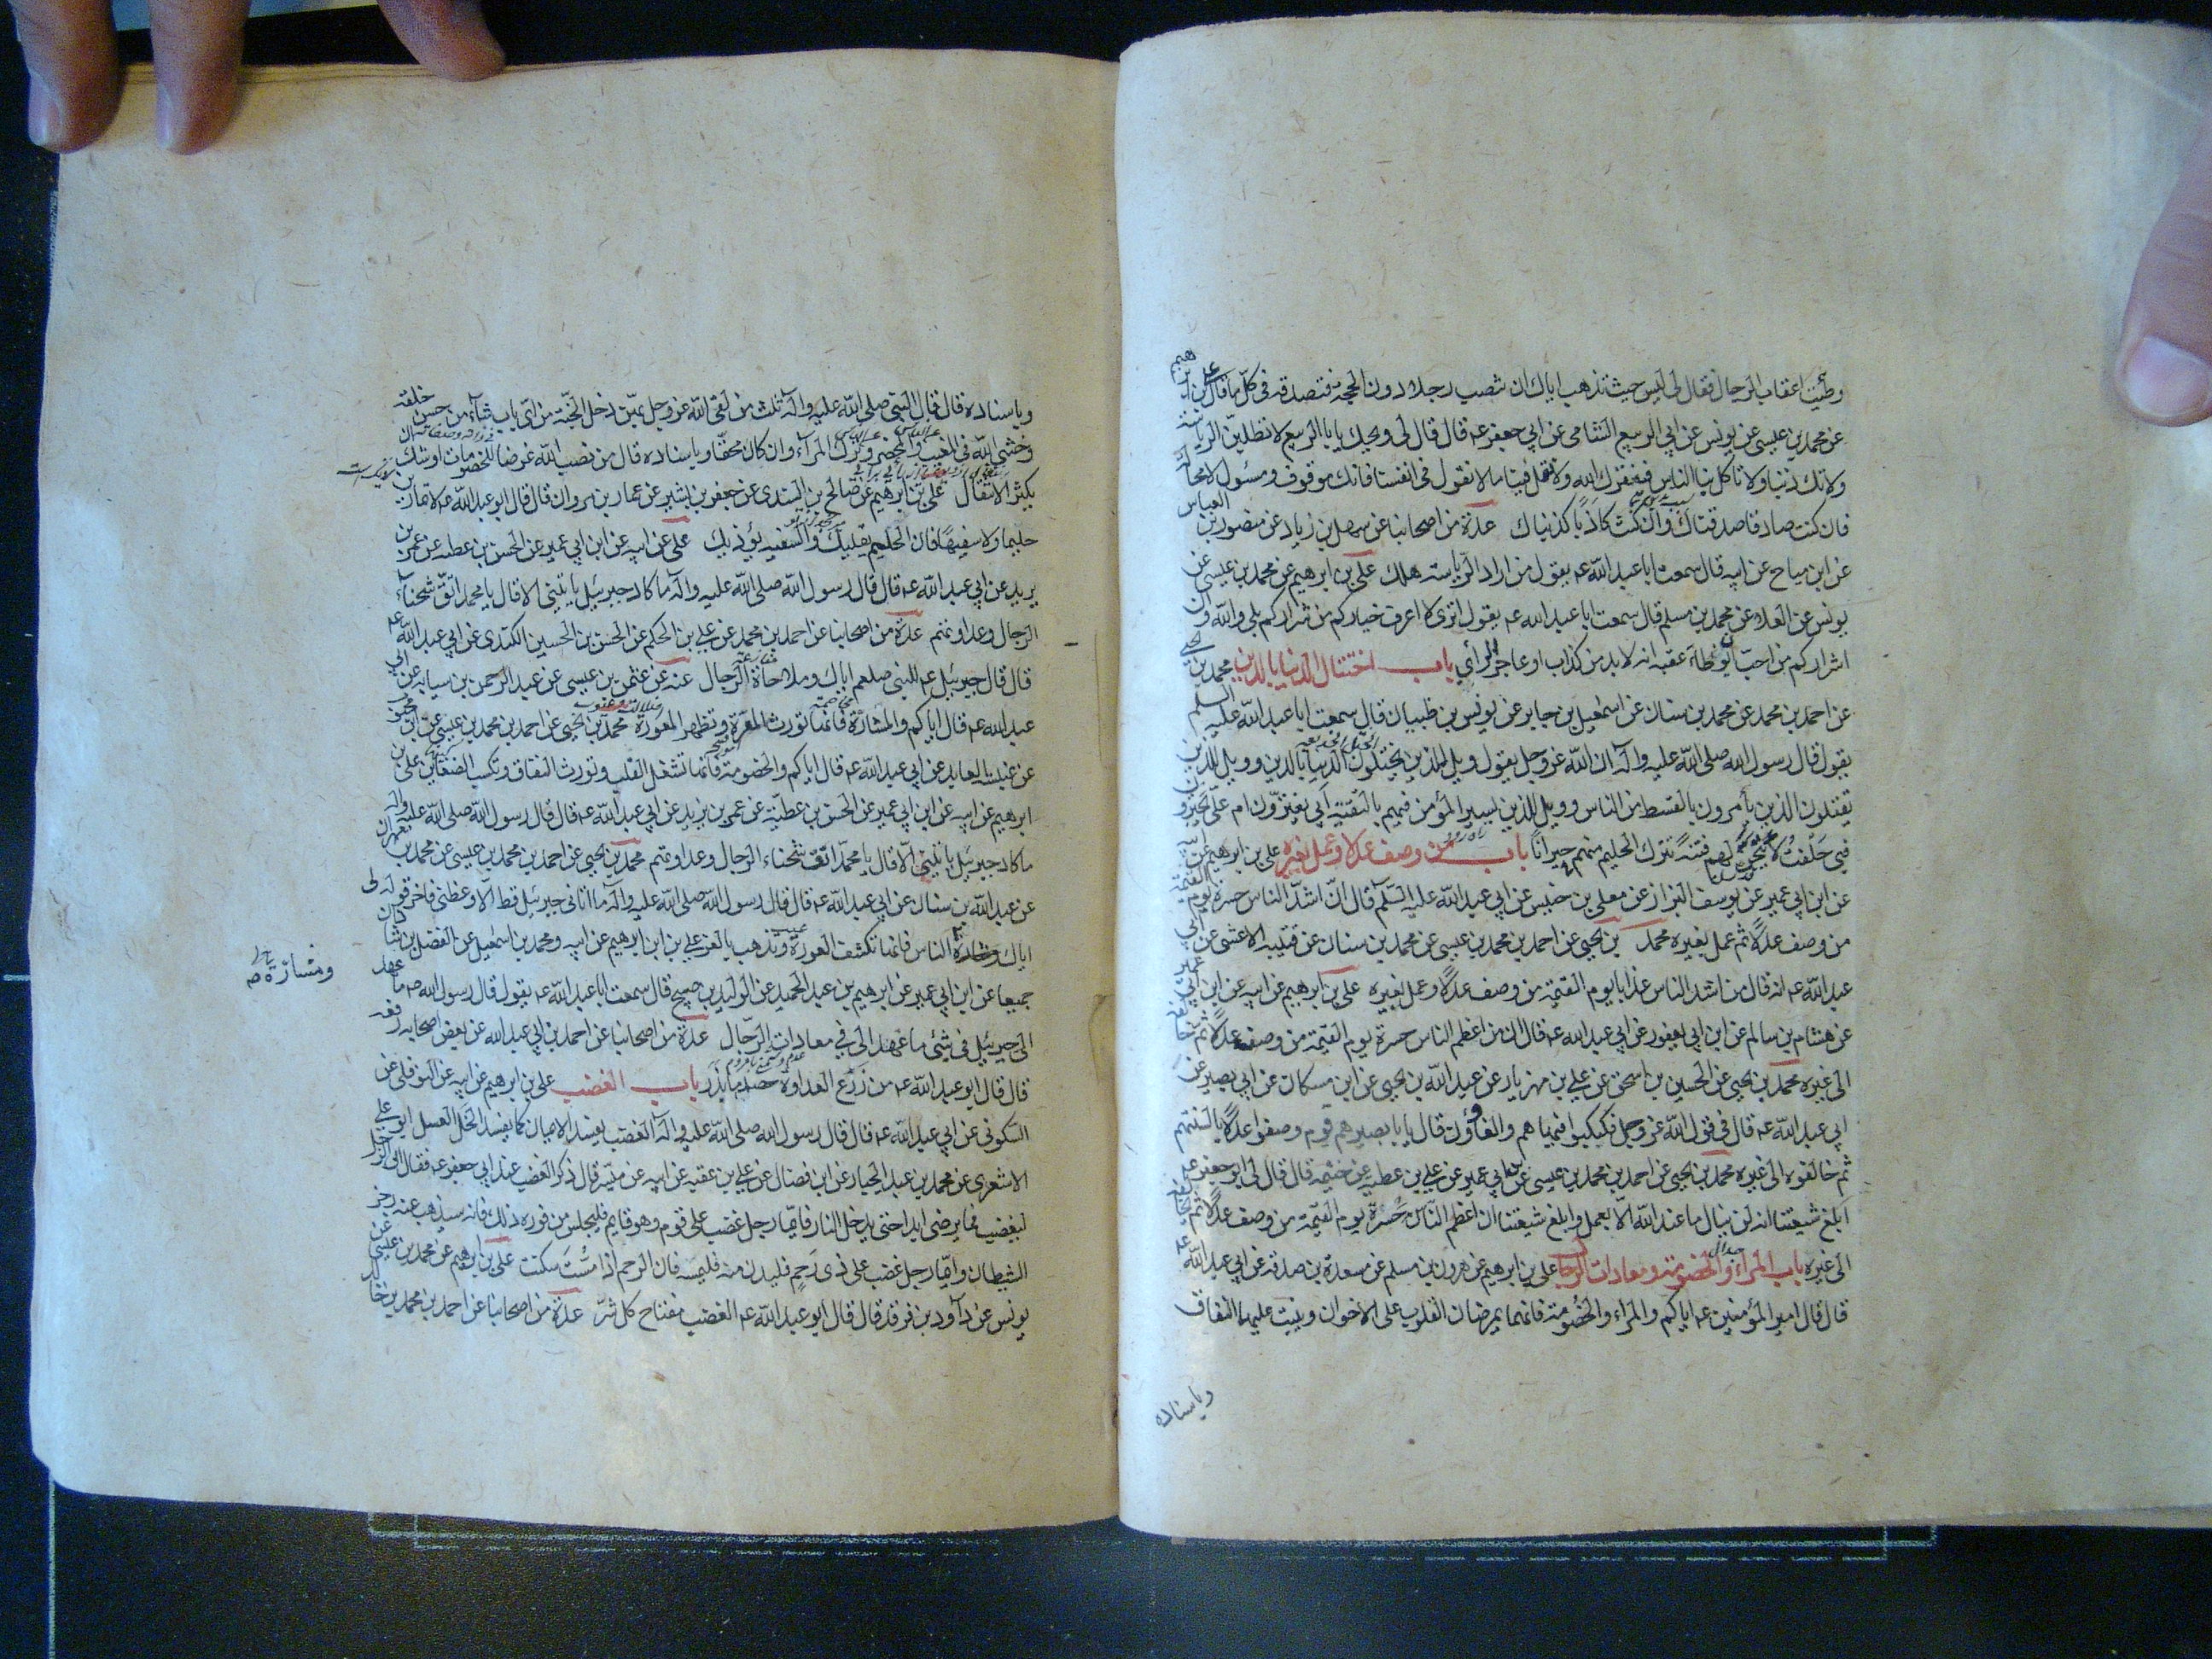 وطيت اعقاب الرجال فقال لي ليس حيث تذهب اياك ان تنصب رجلا دون الحجة فتصدقه في كل ما قال علي بن ابرهيم
عن محمد بن عيسى عن يونس عن ابي الربيع الشامي عن ابي جعفر عه قال قال لي ويحك يا با الربيع لا تطلبن الرياسة
ولا تك ذئبا ولا تاكل بنا الناس فيفقرك الله ولا تقل فينا ما لا نقول في انفسنا فانك موقوف ومسئول لا محالة
فان كنت صادقا صدقناك وان كنت كاذبا كذبناك عدة من اصحابنا عن سهل بن زياد عن منصور بن العباس
عن ابن مياح عن ابيه قال سمعت ابا عبد الله عه يقول من اراد الرياسة هلك علي بن ابرهيم عن محمد بن عيسى عن
يونس عن العلاء عن محمد بن مسلم قال سمعت ابا عبد الله عه يقول اترى لا اعرف خياركم من شراركم بلى والله وان
شراركم من احب ان يوطأ عقبه انه لا بد من كذاب او عاجز الرأي باب اختتال الدنيا بالدين محمد بن يحيى
عن احمد بن محمد عن محمد بن سنان عن اسمعيل بن جابر عن يونس بن ظبيان قال سمعت ابا عبد الله عليه السلم
يقول قال رسول الله صلى الله عليه واله ان الله عز وجل يقول ويل للذين يختلون الدنيا بالدين وويل للذين
يقتلون الذين يأمرون بالقسط من الناس وويل للذين يسير المؤمن فيهم بالتقية أبي يغترون ام علي يجترون
فبي حلفت لاتيحن لهم فتنة تترك الحليم منهم حيرانا باب من وصف عدلا وعمل بغيره علي بن ابرهيم عن ابيه
عن ابن ابي عمير عن يوسف البزاز عن معلى بن خنيس عن ابي عبد الله عليه السلم قال ان اشد الناس حسرة يوم القيمة
من وصف عدلا ثم عمل بغيره محمد بن يحيى عن احمد بن محمد بن عيسى عن محمد بن سنان عن قتيبه الاعشى عن ابي
عبد الله عه انه قال من اشد الناس عذابا يوم القيمة من وصف عدلا وعمل بغيره علي بن ابرهيم عن ابيه عن ابن ابي عمير
عن هشام بن سالم عن ابن ابي يعفور عن ابي عبد الله عه قال ان من اعظم الناس حسرة يوم القيمة من وصف عدلا ثم خالفه
الى غيره محمد بن يحيى عن الحسين بن اسحق عن علي بن مهزيار عن عبد الله بن يحيى عن ابن مسكان عن ابي بصير عن
ابي عبد الله عه قال في قول الله عز وجل فكبكبوا فيها هم والغاوون قال يا با بصير هم قوم وصفوا عدلا بالسنتهم
ثم خالفوه الى غيره محمد بن يحيى عن احمد بن محمد بن عيسى عن ابن ابي عمير عن علي بن عطيه عن خيثمه قال قال لي ابو جعفر عه
ابلغ شيعتنا انه لن ينال ما عند الله الا بعمل وابلغ شيعتنا ان اعظم الناس حسرة يوم القيمة من وصف عدلا ثم يخالفه
الى غيره باب المراء والخصومة ومعادات الرجال علي بن ابرهيم عن هرون بن مسلم عن مسعدة بن صدقة عن ابي عبد الله عه
قال قال امير المؤمنين عه اياكم والمراء والخصومة فانهما يمرضان القلوب على الاخوان وينبت عليهما النفاق
وباسناده
وباسناده قال قال النبي صلى الله عليه واله ثلث من لقى الله عز وجل بهن دخل الجنة من اي باب شاء من حسن خلقه
وخشي الله في المغيب والمحضر وترك المراء وان كان محقا وباسناده قال من نصب الله غرضا للخصومات اوشك ان
يكثر الانتقال علي بن ابرهيم عن صالح بن السندي عن جعفر بن بشير عن عمار بن مروان قال قال ابو عبد الله عه لا تمارين
حليما ولا سفيها فان الحليم يقليك والسفيه يؤذيك علي عن ابيه عن ابن ابي عمير عن الحسن بن عطيه عن عمر بن
يزيد عن ابي عبد الله عه قال قال رسول الله صلى الله عليه واله ما كاد جبرئيل ياتيني الا قال يا محمد اتق شحناء
الرجال وعداوتهم عدة من اصحابنا عن احمد بن محمد عن علي بن الحكم عن الحسن بن الحسين الكندي عن ابي عبد الله عه
قال قال جبرئيل عه للنبي صلعم اياك وملاحاة الرجال عنه عن عثمن بن عيسى عن عبد الرحمن بن سيابه عن ابي
عبد الله عه قال اياكم والمشارة فانها تورث المعرة وتظهر المعورة محمد بن يحيى عن احمد بن محمد بن عيسى عن ابن محبوب
عن عنبسة العابد عن ابي عبد الله عه قال اياكم والخصومة فانها تشغل القلب وتورث النفاق وتكسب الضغائن علي بن
ابرهيم عن ابيه عن ابن ابي عمير عن الحسن بن عطية عن عمر بن يزيد عن ابي عبد الله عه قال قال رسول الله صلى الله عليه واله
ما كاد جبرئيل ياتيني الا قال يا محمد اتق شحناء الرجال وعداوتهم محمد بن يحيى عن احمد بن محمد بن عيسى عن محمد بن مهران
عن عبد الله بن سنان عن ابي عبد الله عه قال قال رسول الله صلى الله عليه واله ما اتاني جبرئيل قط الا وعظني فاخر قوله لي
اياك ومشادة الناس فانها تكشف العورة وتذهب بالعز علي بن ابرهيم عن ابيه ومحمد بن اسمعيل عن الفضل بن شاذان
ومشارة
جميعا عن ابن ابي عمير عن ابرهيم بن عبد الحميد عن الوليد بن صبيح قال سمعت ابا عبد الله عه يقول قال رسول الله صه ما عهد
الى جبرئيل في شئ ما عهد الي في معادات الرجال عدة من اصحابنا عن احمد بن ابي عبد الله عن بعض اصحابه رفعه
قال قال ابو عبد الله عه من زرع العداوة حصد ما بذر باب الغضب علي بن ابرهيم عن ابيه عن النوفلي عن
السكوني عن ابي عبد الله عه قال قال رسول الله صلى الله عليه واله الغضب يفسد الايمان كما يفسد الخل العسل ابو علي
الاشعري عن محمد بن عبد الجبار عن ابن فضال عن علي بن عقبه عن ابيه عن ميسر قال ذكر الغضب عند ابي جعفر عه فقال ان الرجل
ليغضب فما يرضى ابدا حتى يدخل النار فايما رجل غضب على قوم وهو قايم فليجلس من فوره ذلك فانه سيذهب عنه رجز
الشيطان وايما رجل غضب على ذي رحم فليدن منه فليمسه فان الرحم اذا مست سكنت علي بن ابرهيم عن محمد بن عيسى عن
يونس عن داود بن فرقد قال قال ابو عبد الله عه الغضب مفتاح كل شر عدة من اصحابنا عن احمد بن محمد بن خالد